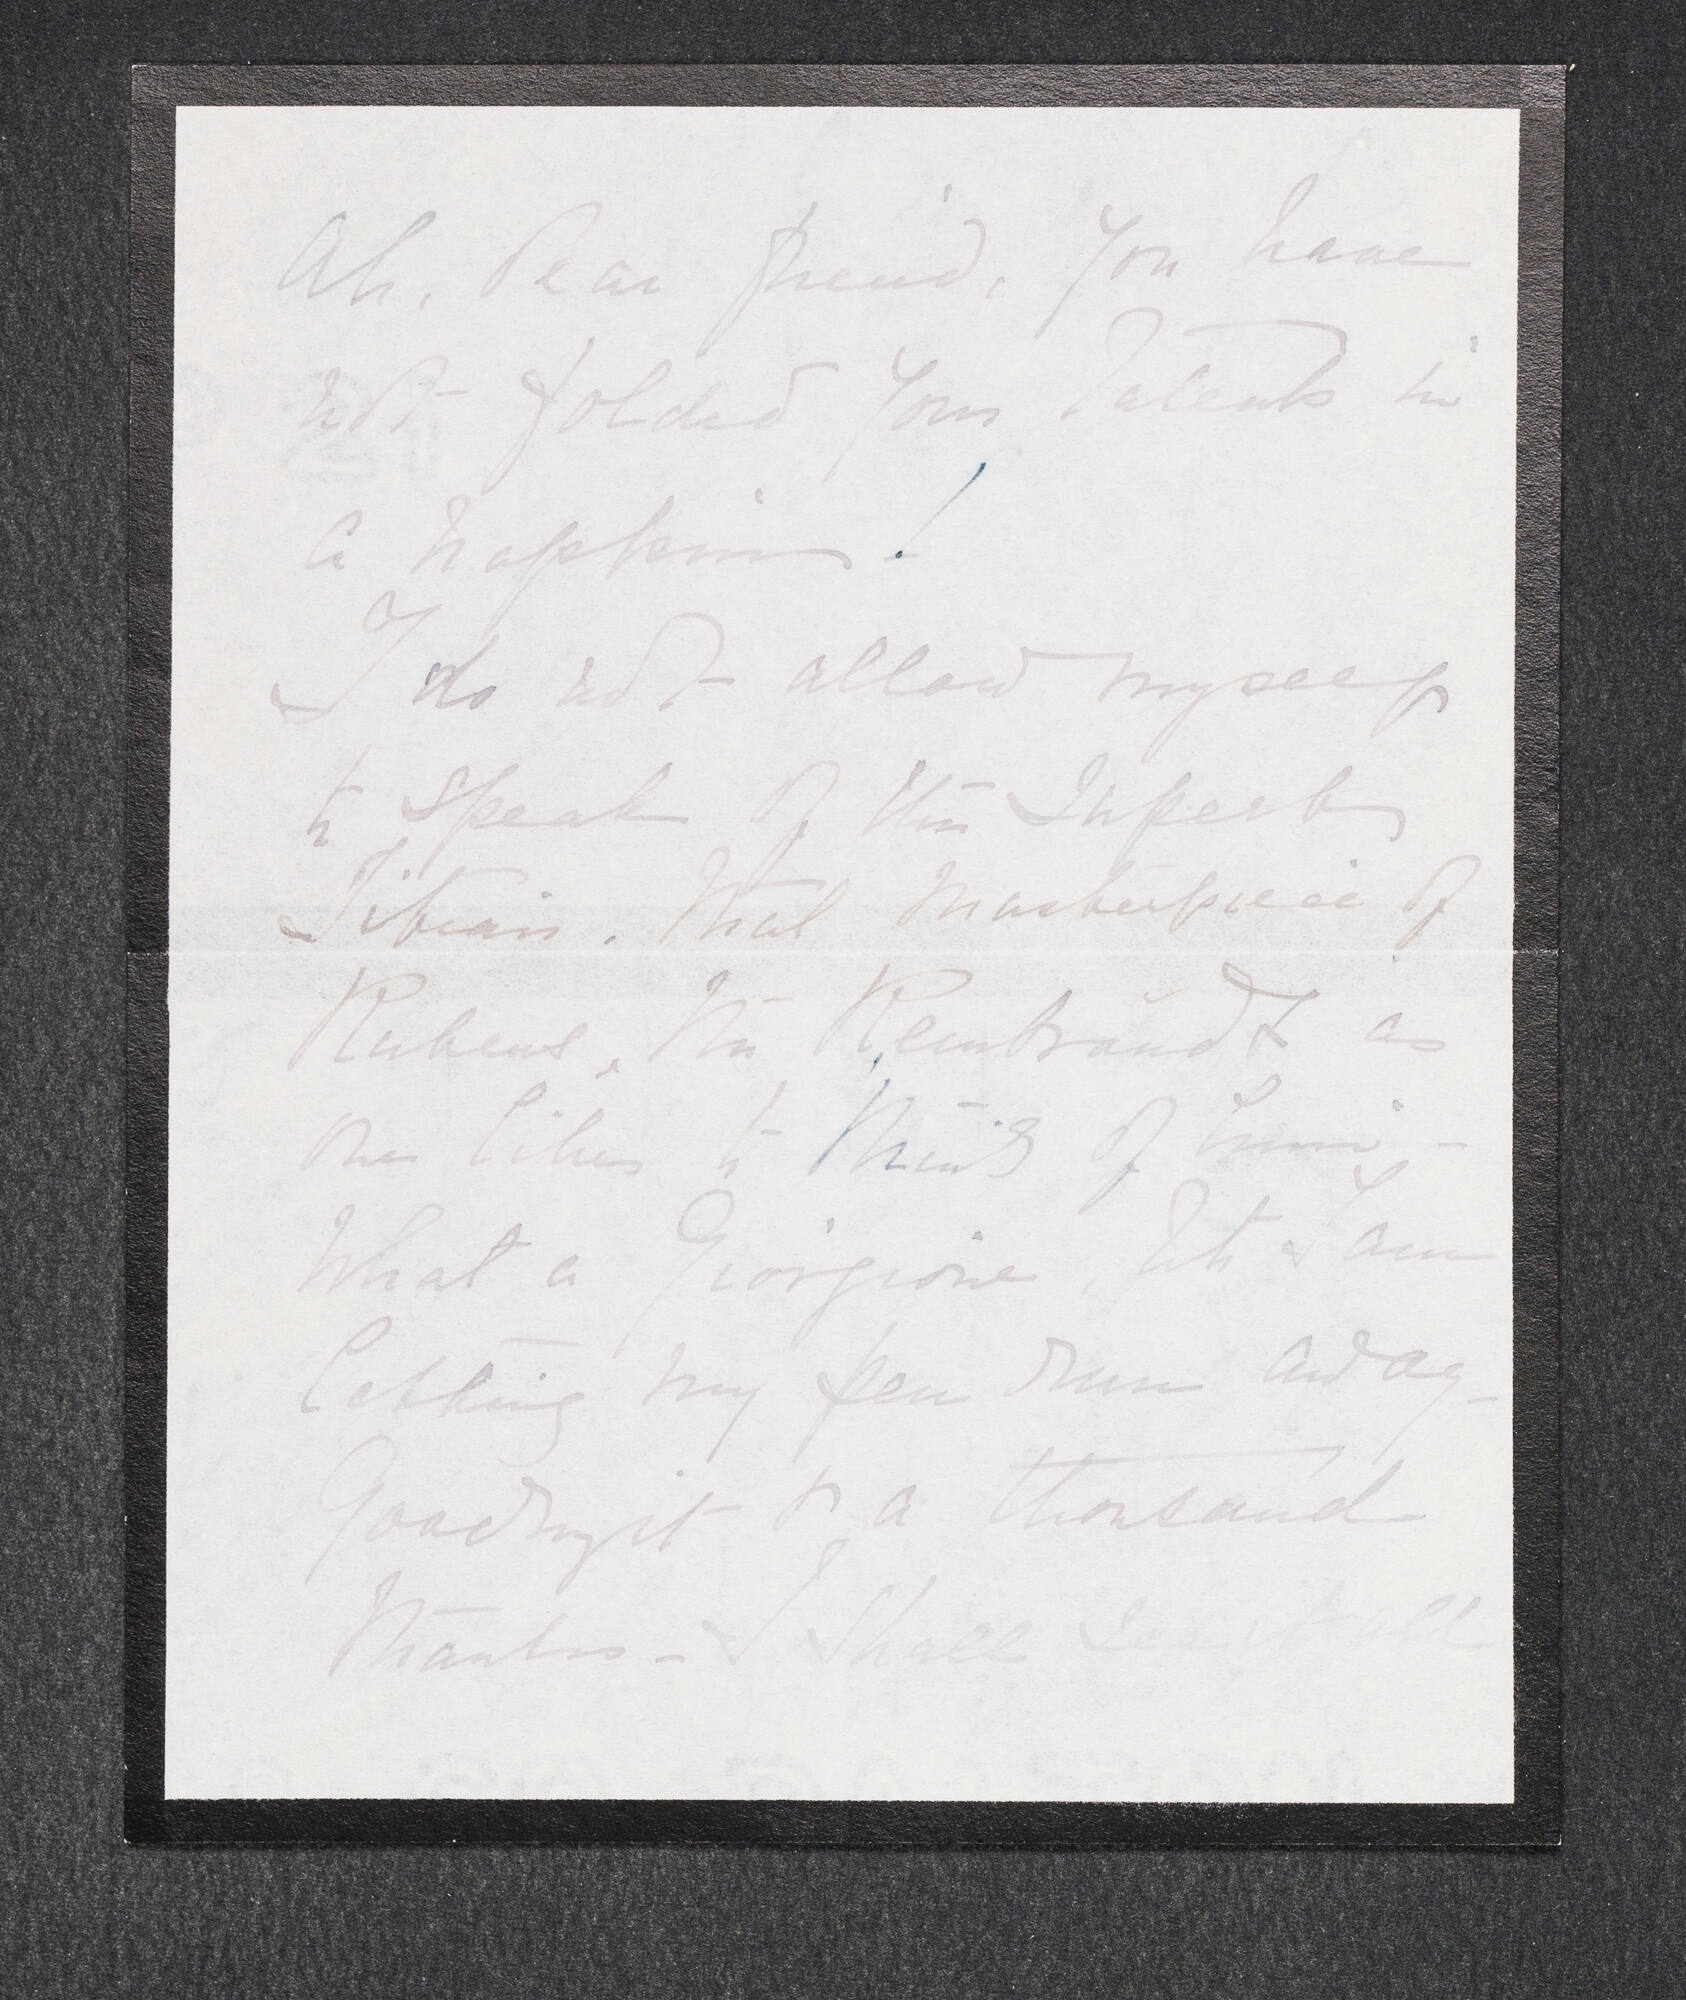 Ah, Dear friend, You have
not folded your Talents in
a napkin!
I do not allow myself
to speak of this Superb
Titian. that masterpiece of
Rubens, the Rembrandt as
one likes to think of him -
What a Giorgione, but I am
letting my pen run away -
Goodnight & a thousand
thanks - I shall see it all